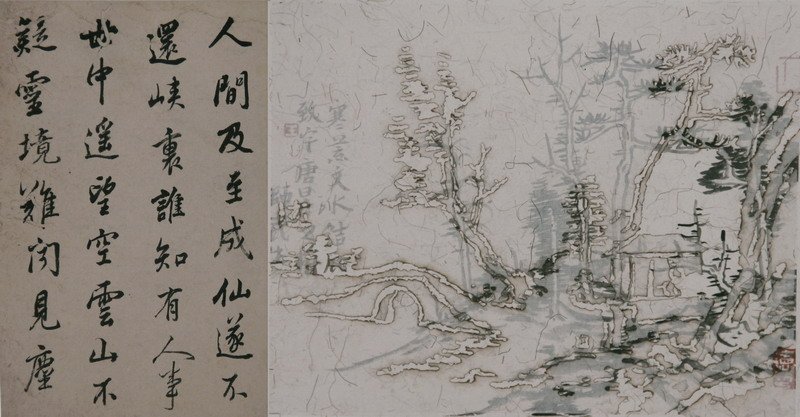 人間及至成仙遂不
還峽裏誰知有人事
世中遥望空雲山不
疑靈境難聞見塵